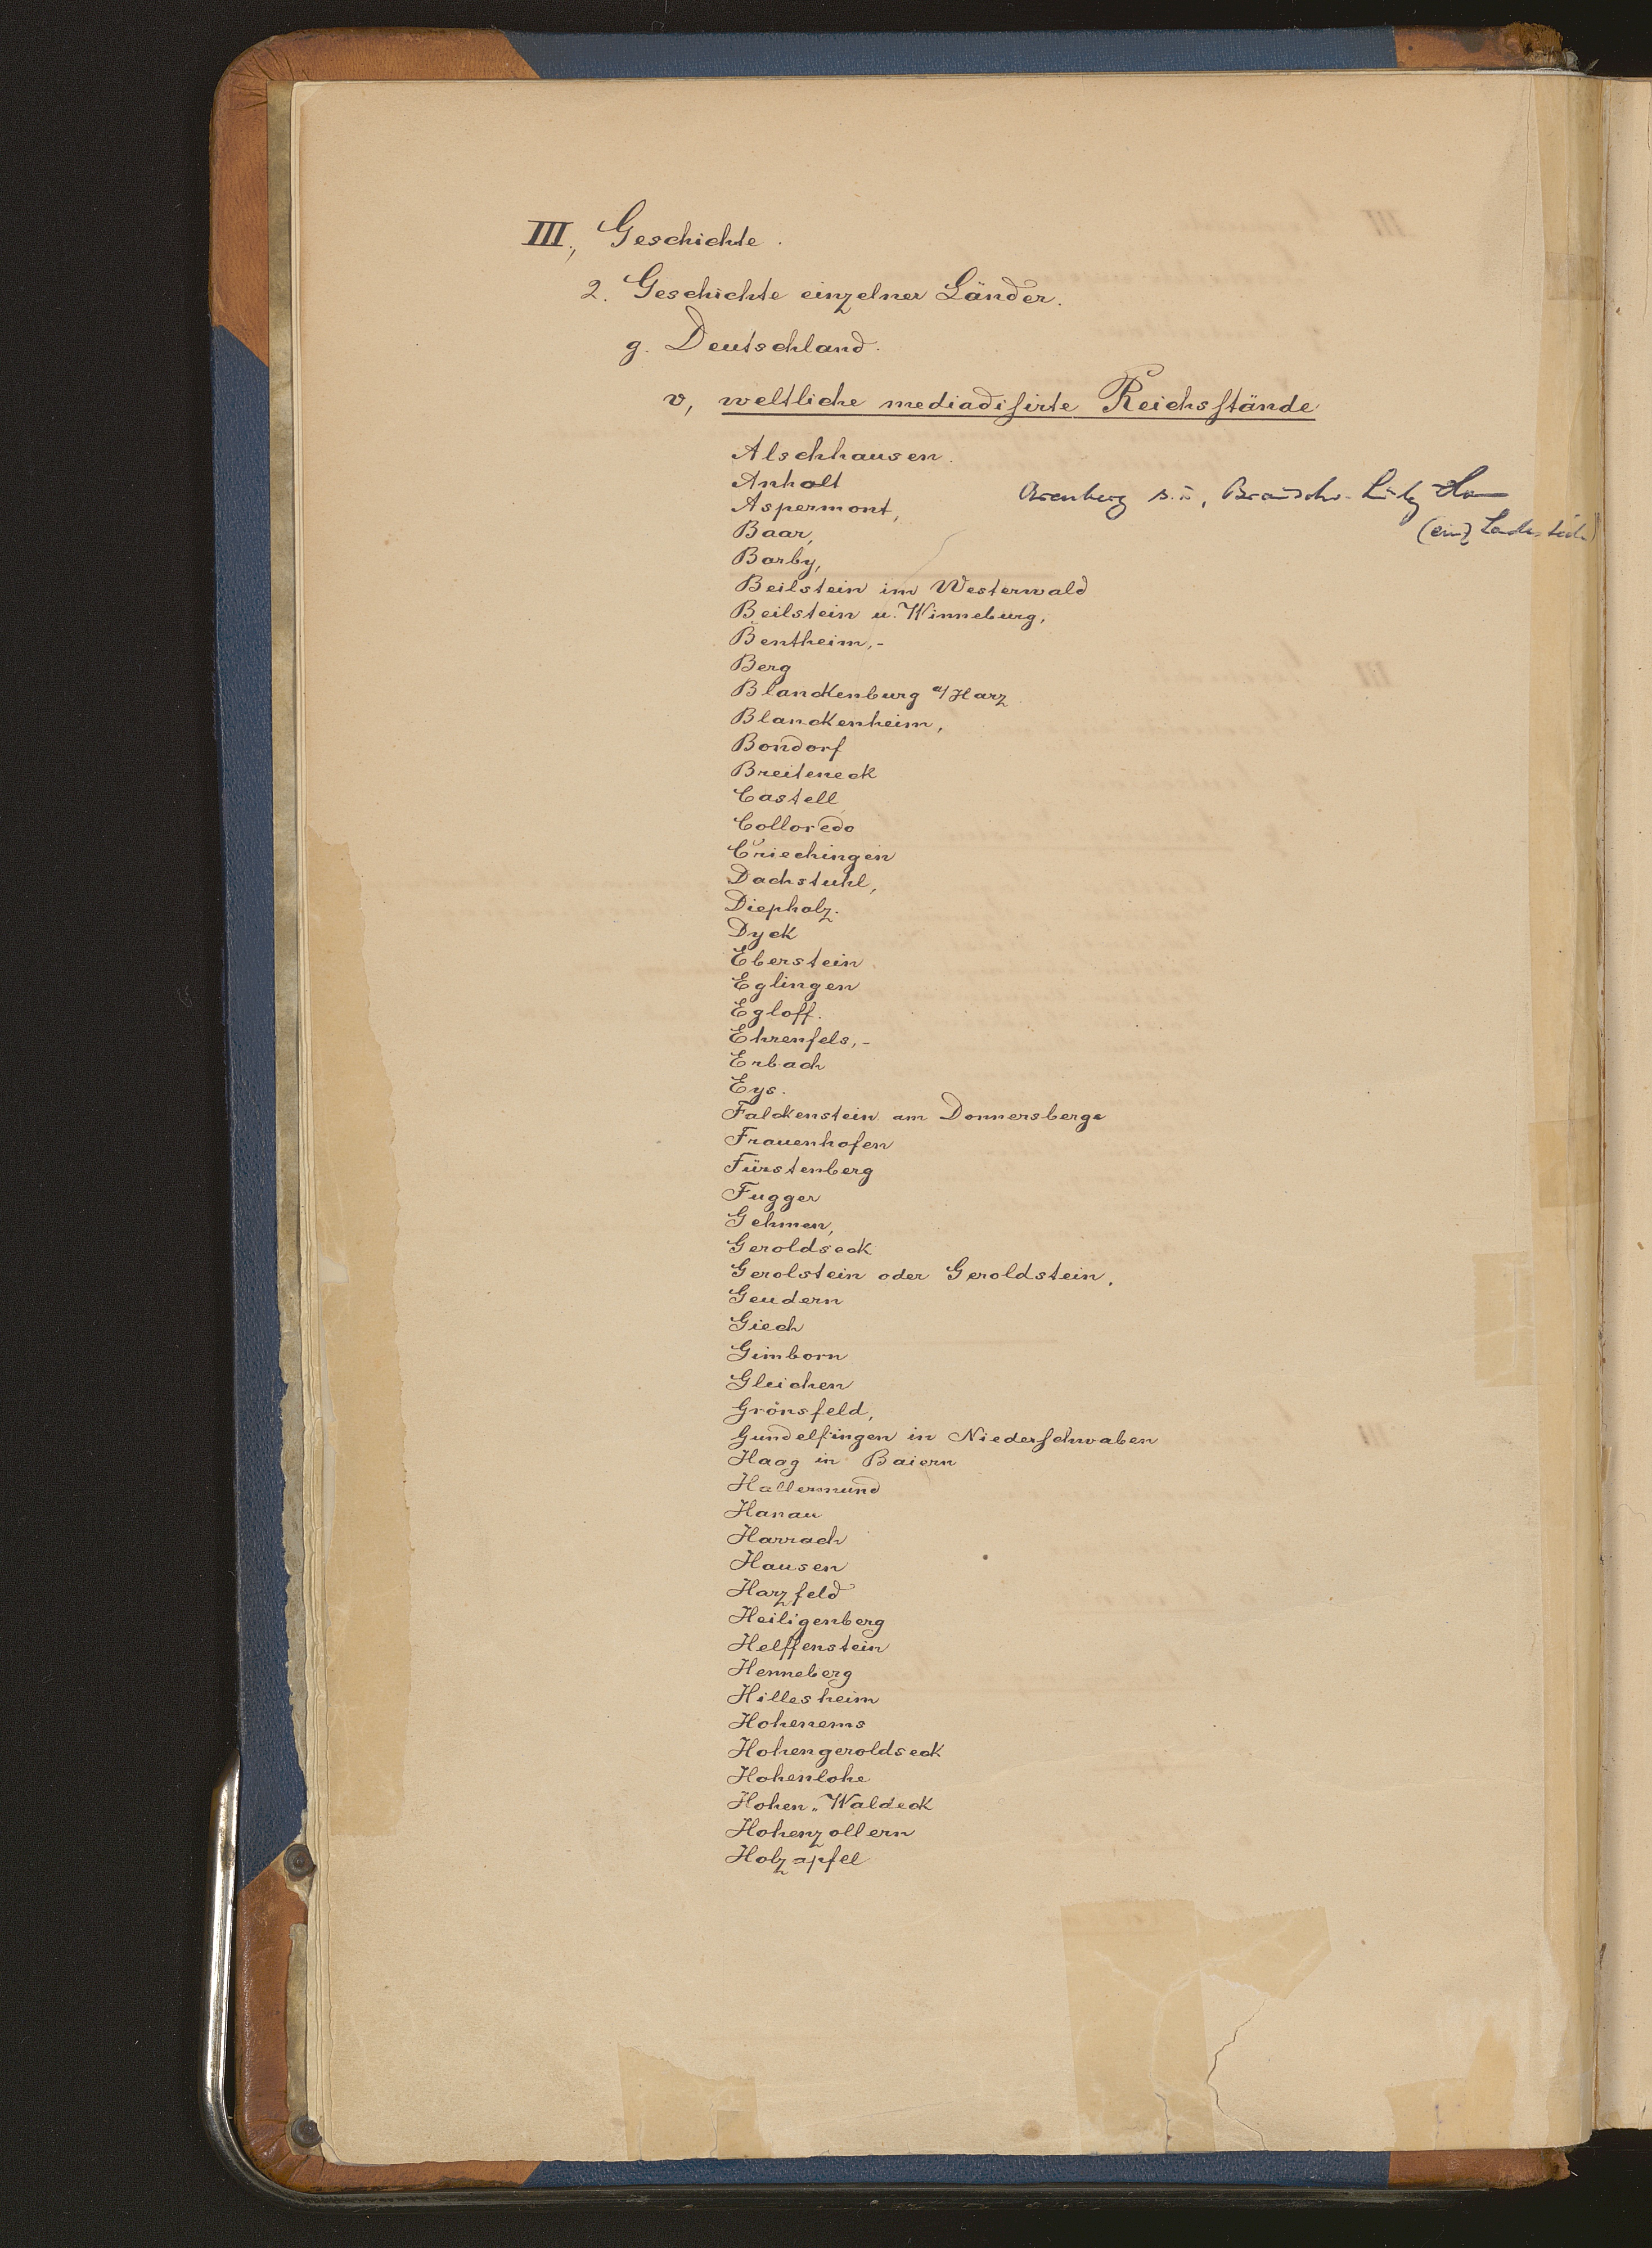 III., Geschichte.
2. Geschichte einzelner Länder.
g. Deutschland.
v, weltliche mediadisirte Reichsstände
Alschhausen.
Anhalt
Arenberg s. u., Braunschw.-Lünebg
Aspermont,
Baar,
Barby,
Beilstein im Westerwald
Beilstein u. Winneburg,
Bentheim,-
Berg
Blanckenburg a/Harz
Blanckenheim,
Bondorf
Breiteneck
Castell
Colloredo
Criechingen
Dachstuhl,
Diepholz.
Dyck
Eberstein
Eglingen
Egloff.
Ehrenfels,-
Erbach
Eys.
Falckenstein am Donnersberge
Frauenhofen
Fürstenberg
Fugger
Gehmen,
Geroldseck
Gerolstein oder Geroldstein.
Geudern
Giech
Gimborn
Gleichen
Grönsfeld,
Gundelfingen in Niederschwaben
Haag in Baiern
Hallermund
Hanau
Harrach
Hausen
Harzfeld
Heiligenberg
Helffenstein
Henneberg
Hillesheim
Hohenems
Hohengeroldseck
Hohenlohe
Hohen„Waldeck
Hohenzollern
Holzapfel